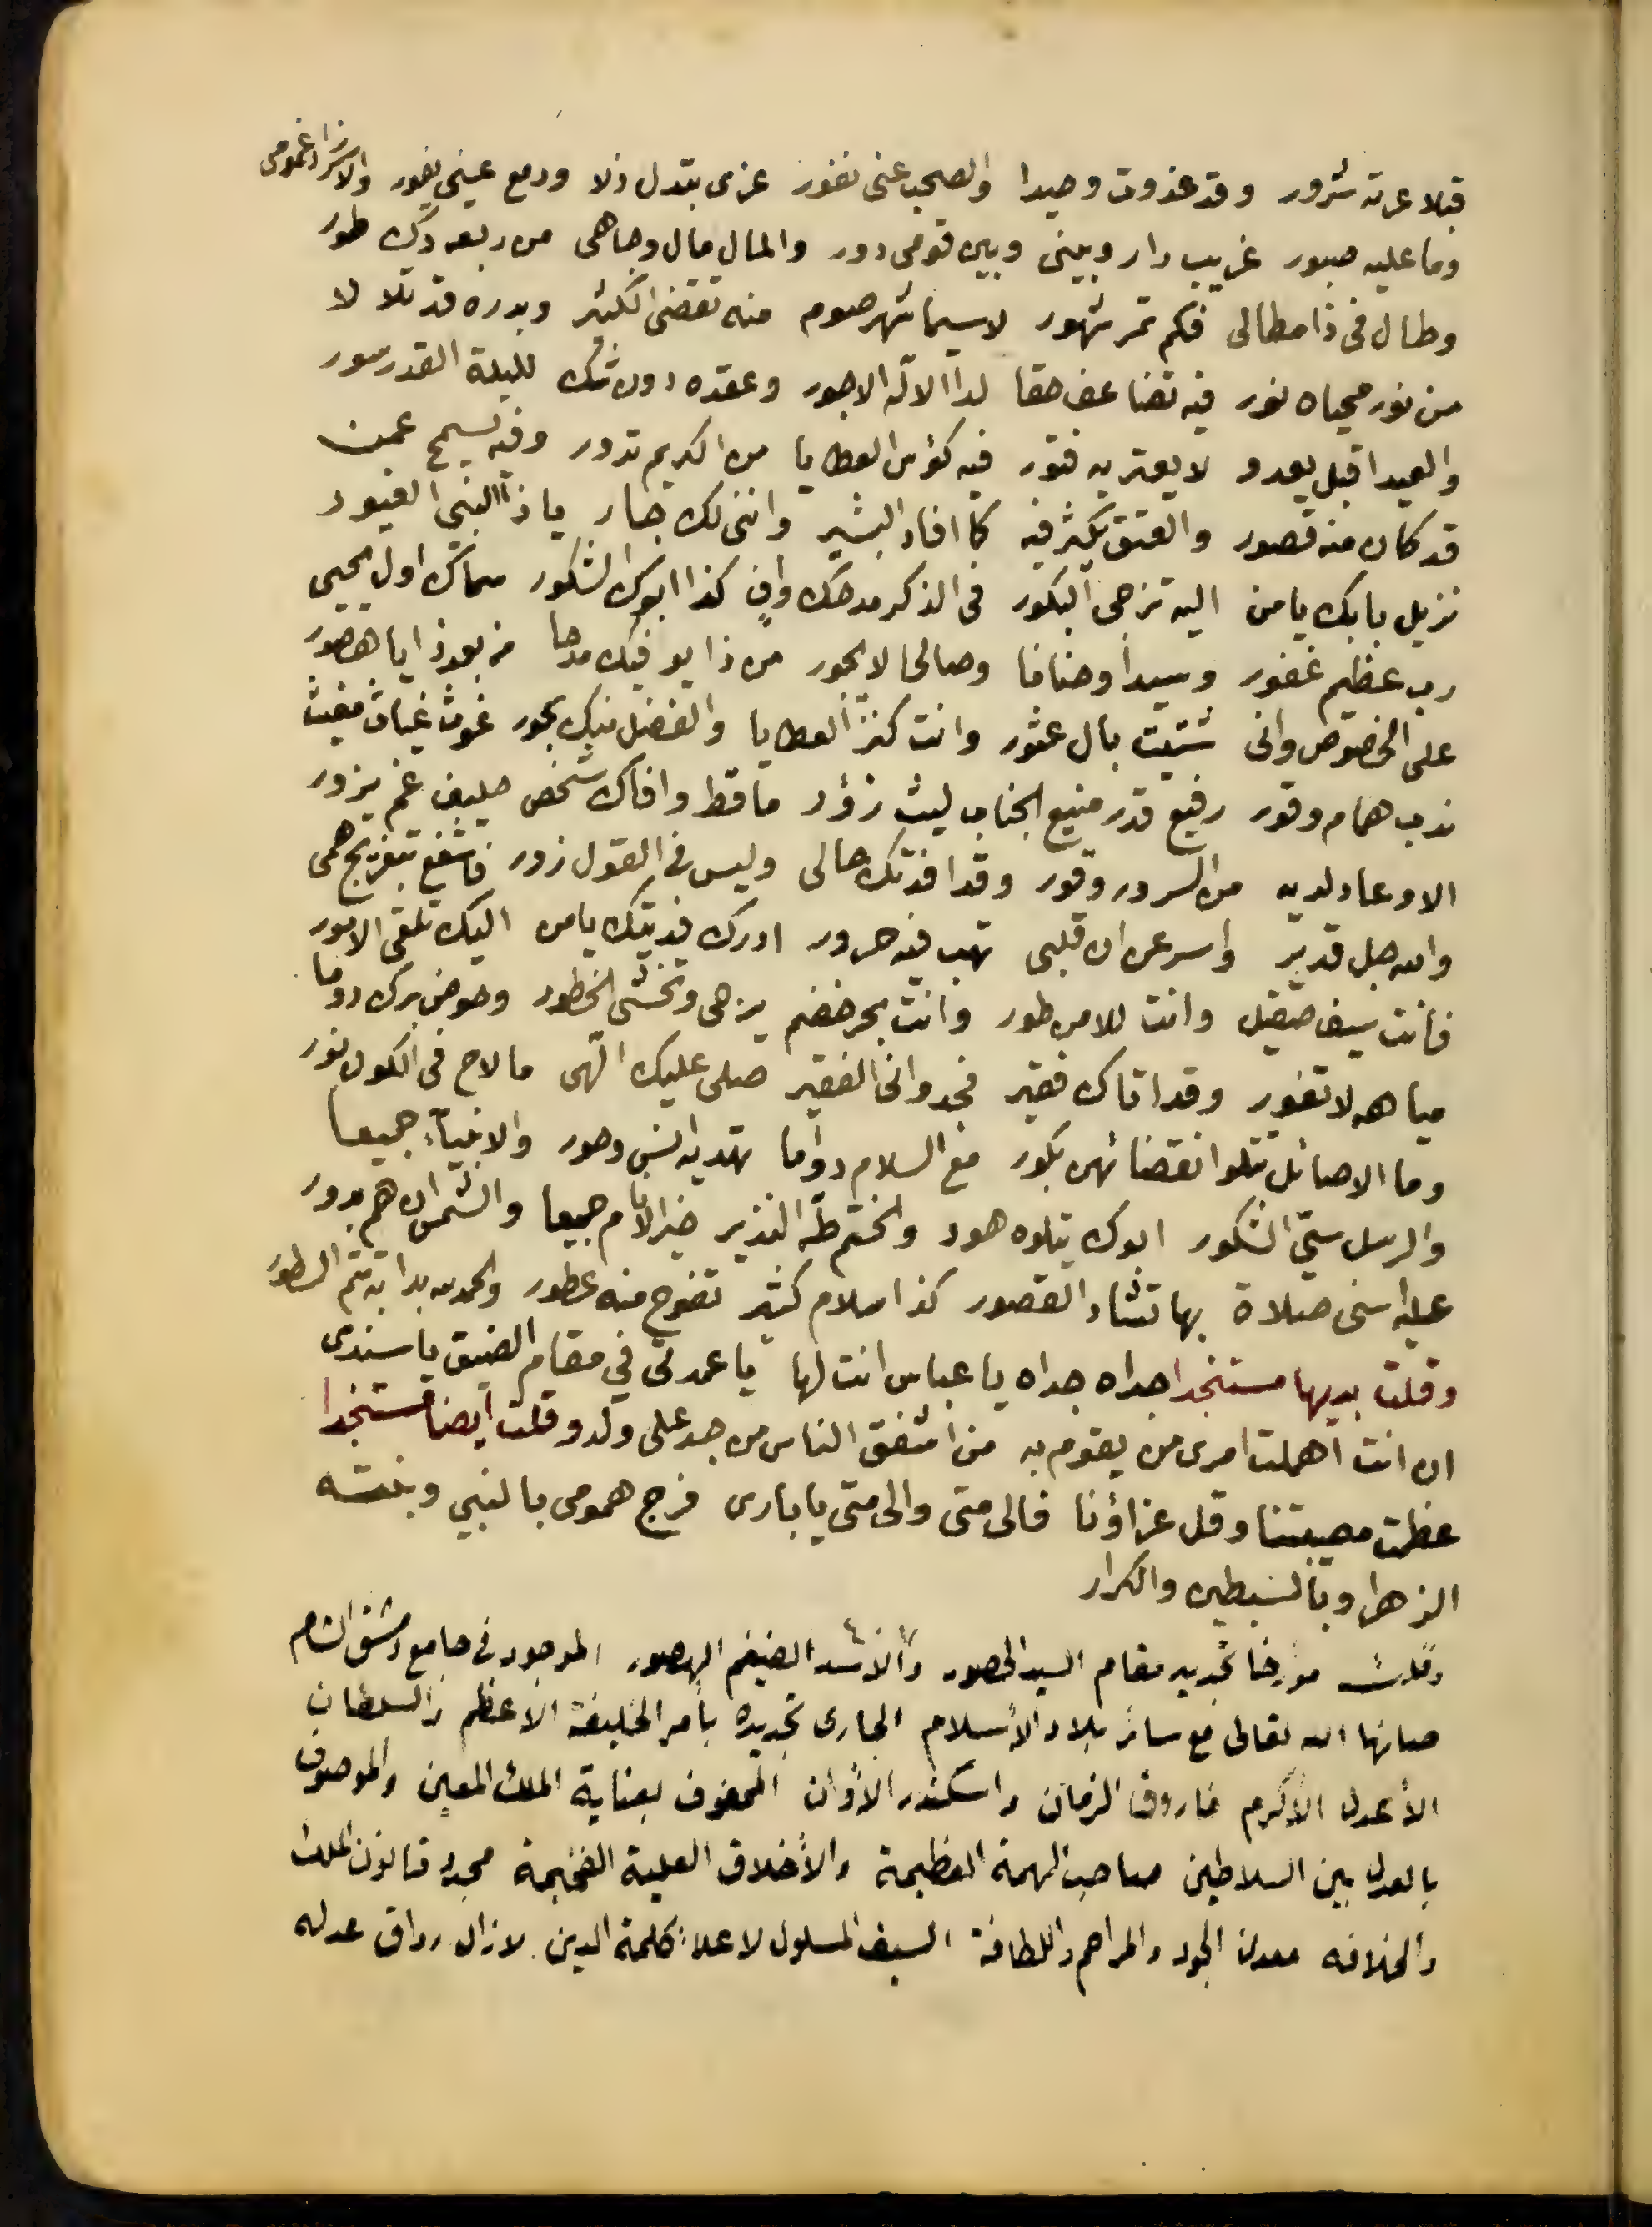 قبلا عرته شرور وقد غدوت وحيدا والصحب عنى نفور عزى بتدل ذلا ودمع عينى يفور والاسر زاد غمومى
وما عليه صبور غريب دار وبينى وبين قومى دور والمال مال وجاهى من ربعه دك طور
وطال فى ذا مطالى فكم تمر شهور لاسيما شهر صوم منه تقضى الكثير وبدره قد تلا لا
من نور محياه نور فيه تضاعف حقا لدا الاله الاجور وعقده دون شك لليلة القدر سور
والعيد اقبل يعدو لا يعتريه فتور فيه كؤس العطايا من الكريم تدور وفيه يسمح عمن
قد كان منه قصور والعتق يكثر فيه كما افاد البشير واننى لك جار ياذا النبى الغيور
نزيل بابك يا من اليه تزجى البكور فى الذكر مدحك واف كذا ابوك الشكور سماك اول يحيى
رب عظيم غفور وسيدا وحنانا وصالحا لا يحور من ذا يوفيك مدحا من بعد ذا يا هصور
على الخصوص وانى شتيت بال عثور وانت كنز العطايا والفضل منك بحور غوث غياث مغيث
ندب همام وقور رفيع قدر منيع الجناب ليث زؤر ما قط وافاك شخص حليف غم يزور
الا وعاد لديه من السرور وقور وقد افدتك حالى وليس فى القول زور فاشفع بتفريج همى
والله جل قدير واسرعن ان قلبى تهب فيه حرور ادرك فديتك يا من اليك تلقى الامور
فانت سيف صقيل وانت للامن طور وانت بحر خضم يزجى وتخشى الخطور وحوض برك دوما
مياهه لا تغور وقد اتاك فقير فجد وانخا الفقير صلى عليك الهى ما لاح فى الكون نور
وما الاصائل تتلوا نقضائهن بكور مع السلام دواما تهديه انس وحور والانبيآء جميعا
والرسل ستى الشكور ابوك يتلوه هود والختم طه النذير خير الانام جميعا والشمس ان هم بدور
عليه اسنى صلاة بها تشاد القصور كذا سلام كثير تفوح منه عطور والحمد لله بدا به تتم السطور
وقلت بديها مستنجدا جداه جداه يا عباس انت لها يا عمدتى في مقام الضيق يا سندى
ان انت اهملت امرى من يقوم به من اشفق الناس من جد على ولد وقلت ايضا مستنجدا
عظمت مصيبتنا وقل عزاؤنا فالى متى والى متى يا بارى فرج همومى بالنبي وبنته
الزهرا وبالسبطين والكرار
وقلت مؤرخا تجديد مقام السيد الحصور والاسد الضيغم الهصور الموجود فى جامع دمشق الشام
صانها الله تعالى مع سائر بلاد الأسلام الجارى تجديده بأمر الخليفة الأعظم والسلطان
الأعدل الأكرم فاروق الزمان واسكندر الأوان المحفوف بعناية الملك المعين والموصوف
بالعدل بين السلاطين صاحب الهمة العظيمة والأخلاق العلية الفخيمة مجدد قانون الملك
والخلافه معدن الجود والمراحم واللطافة السيف المسلول لاعلاء كلمة الدين لا زال رواق عدله